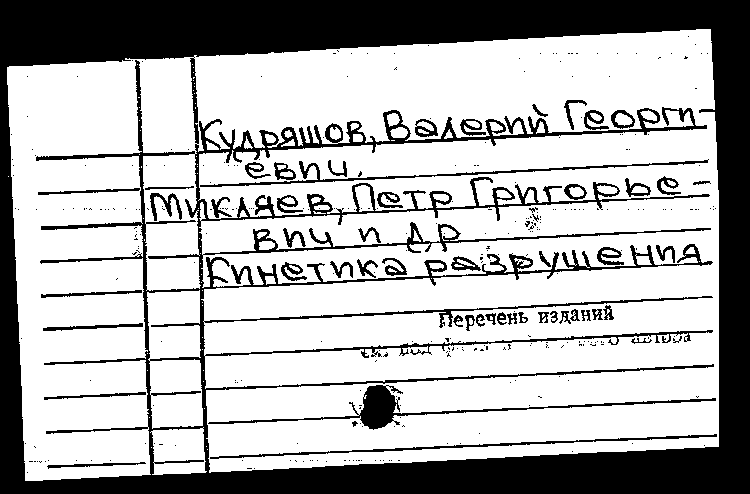 Кудряшов, Валерий Георги-
евич.
Микляев, Петр Григорье-
вич и др
Кинетика разрушения
Перечень изданий
см. под автора